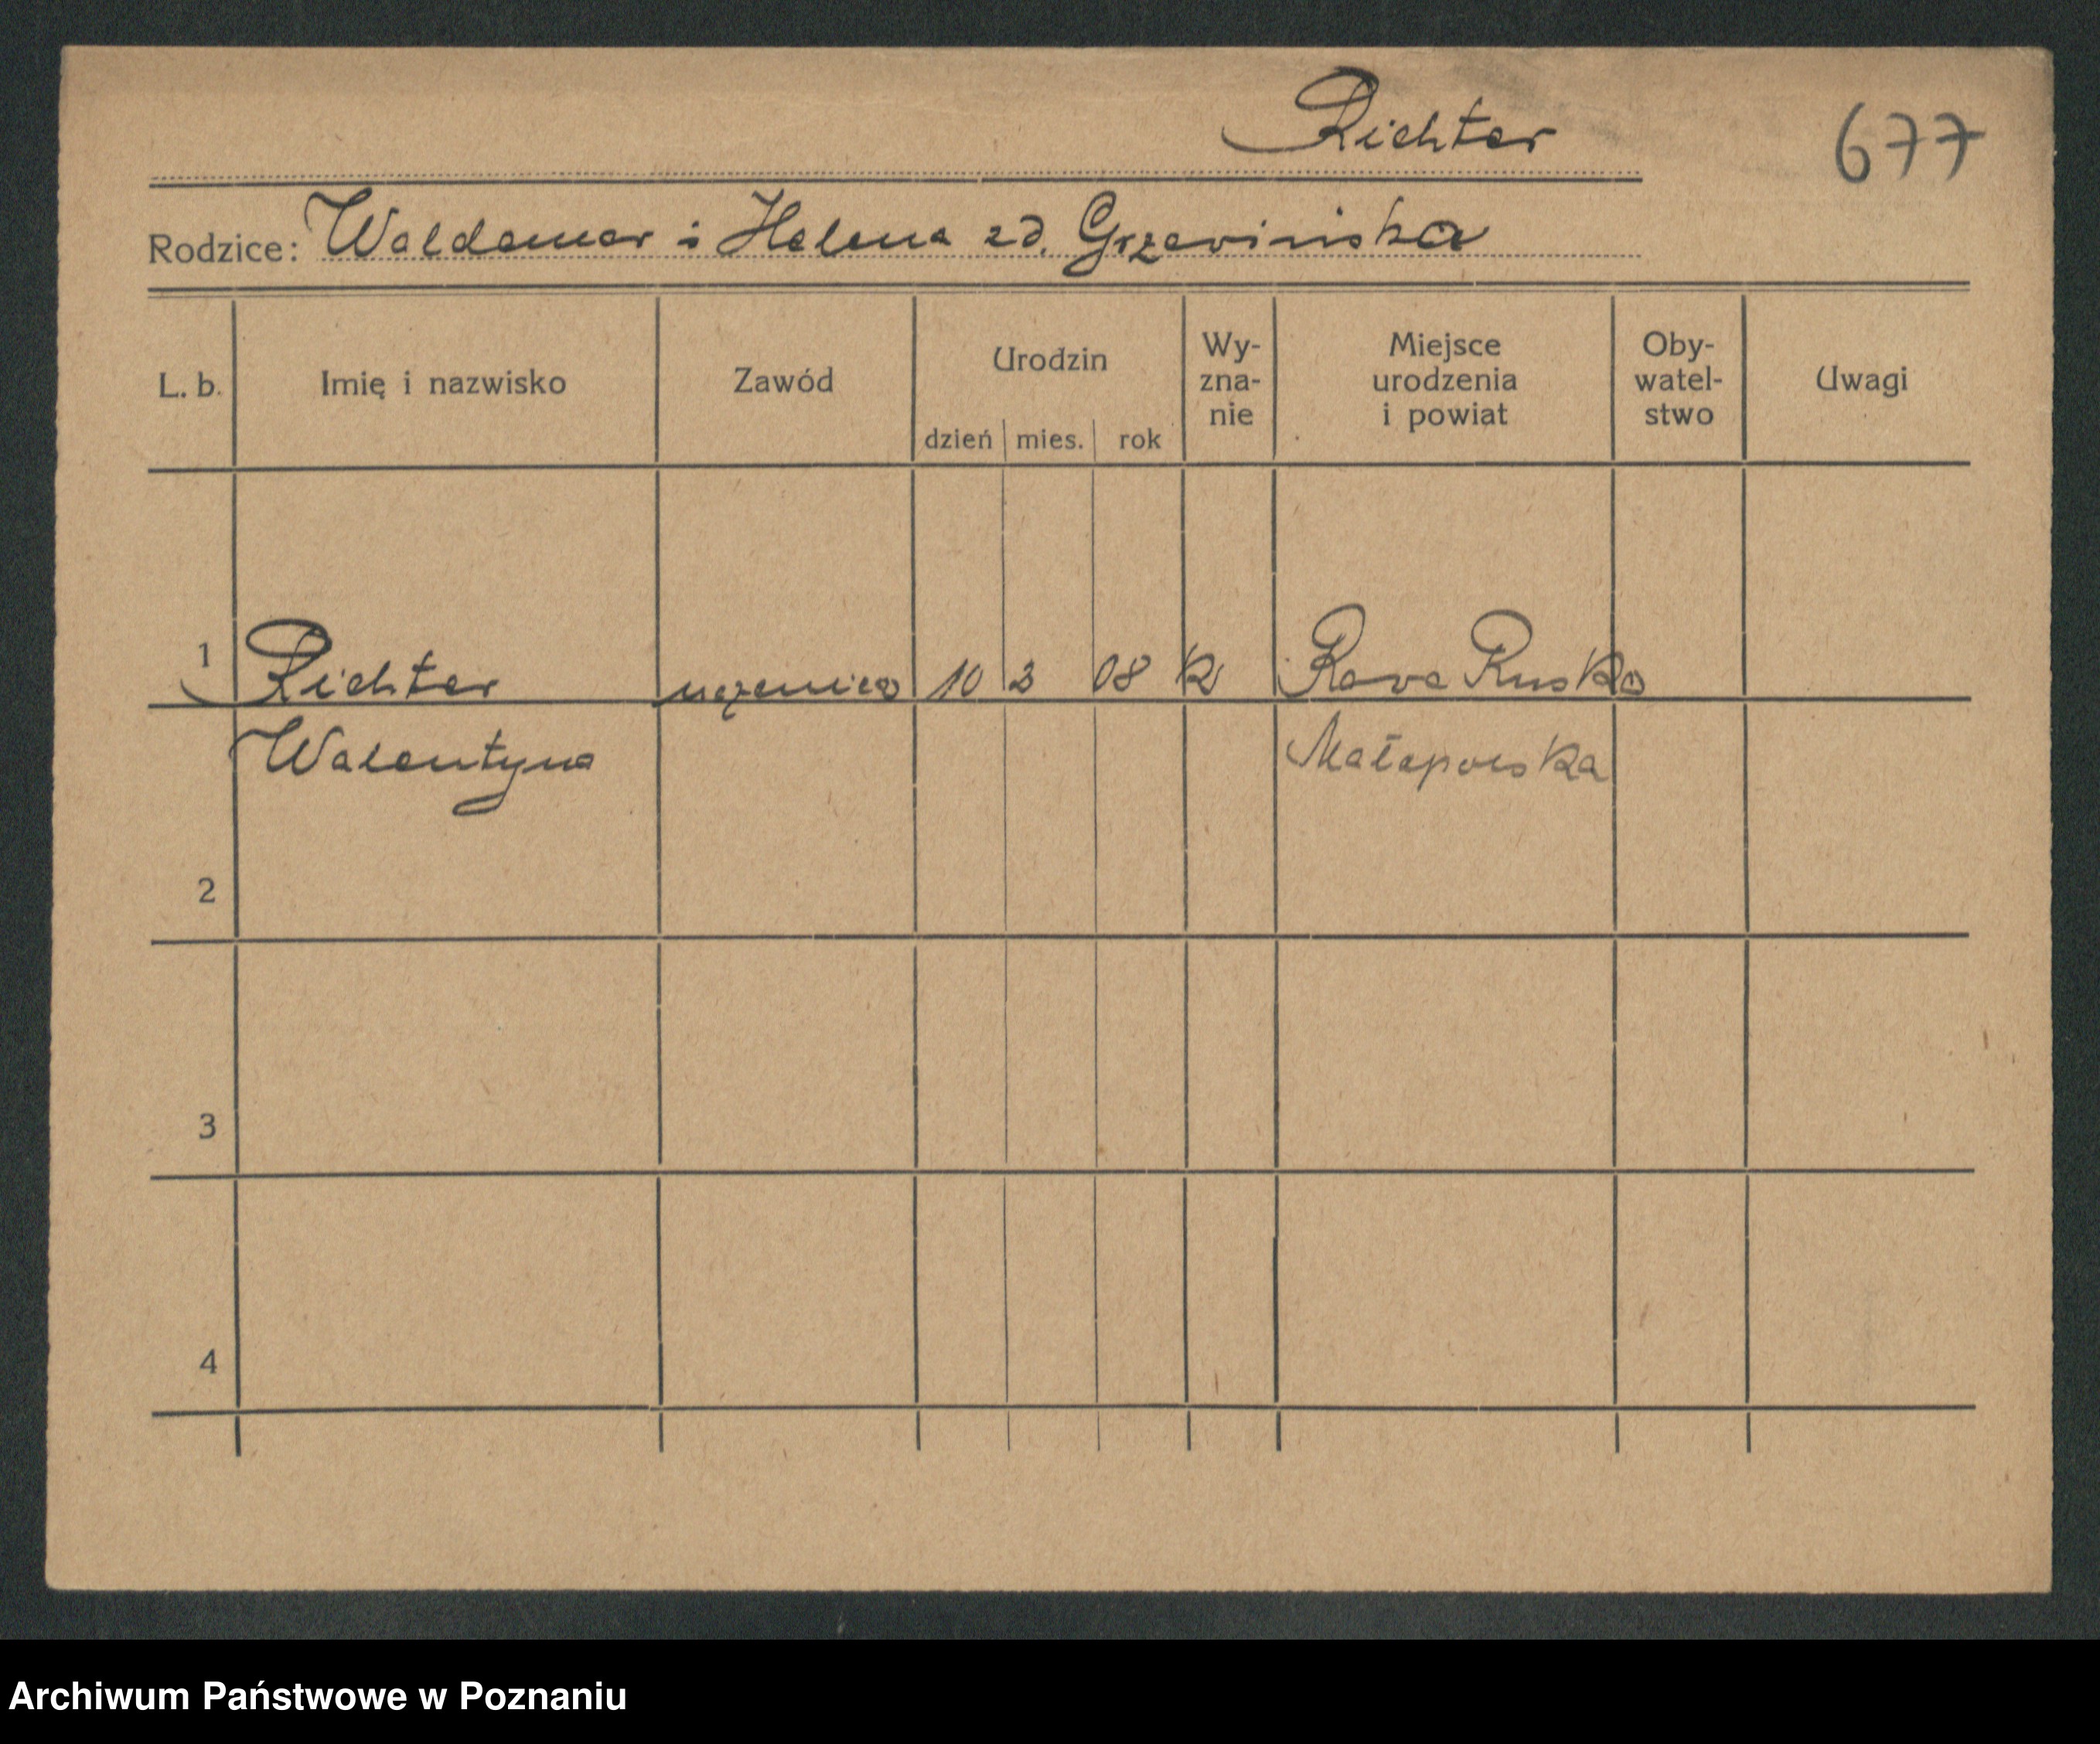 Richter
677
Rodzice: Waldemar i Helena zd. Grzevińska
L. b. Imię i nazwisko Zawód Urodzin dzień mies. rok Wy-zna-nie Miejsce urodzenia i powiat Oby-watel-stwo Uwagi
1 Richter uczenica 10 2 08 K Rava Ruska
Walentyna Małopolska
2
3
4
Archiwum Państwowe w Poznaniu